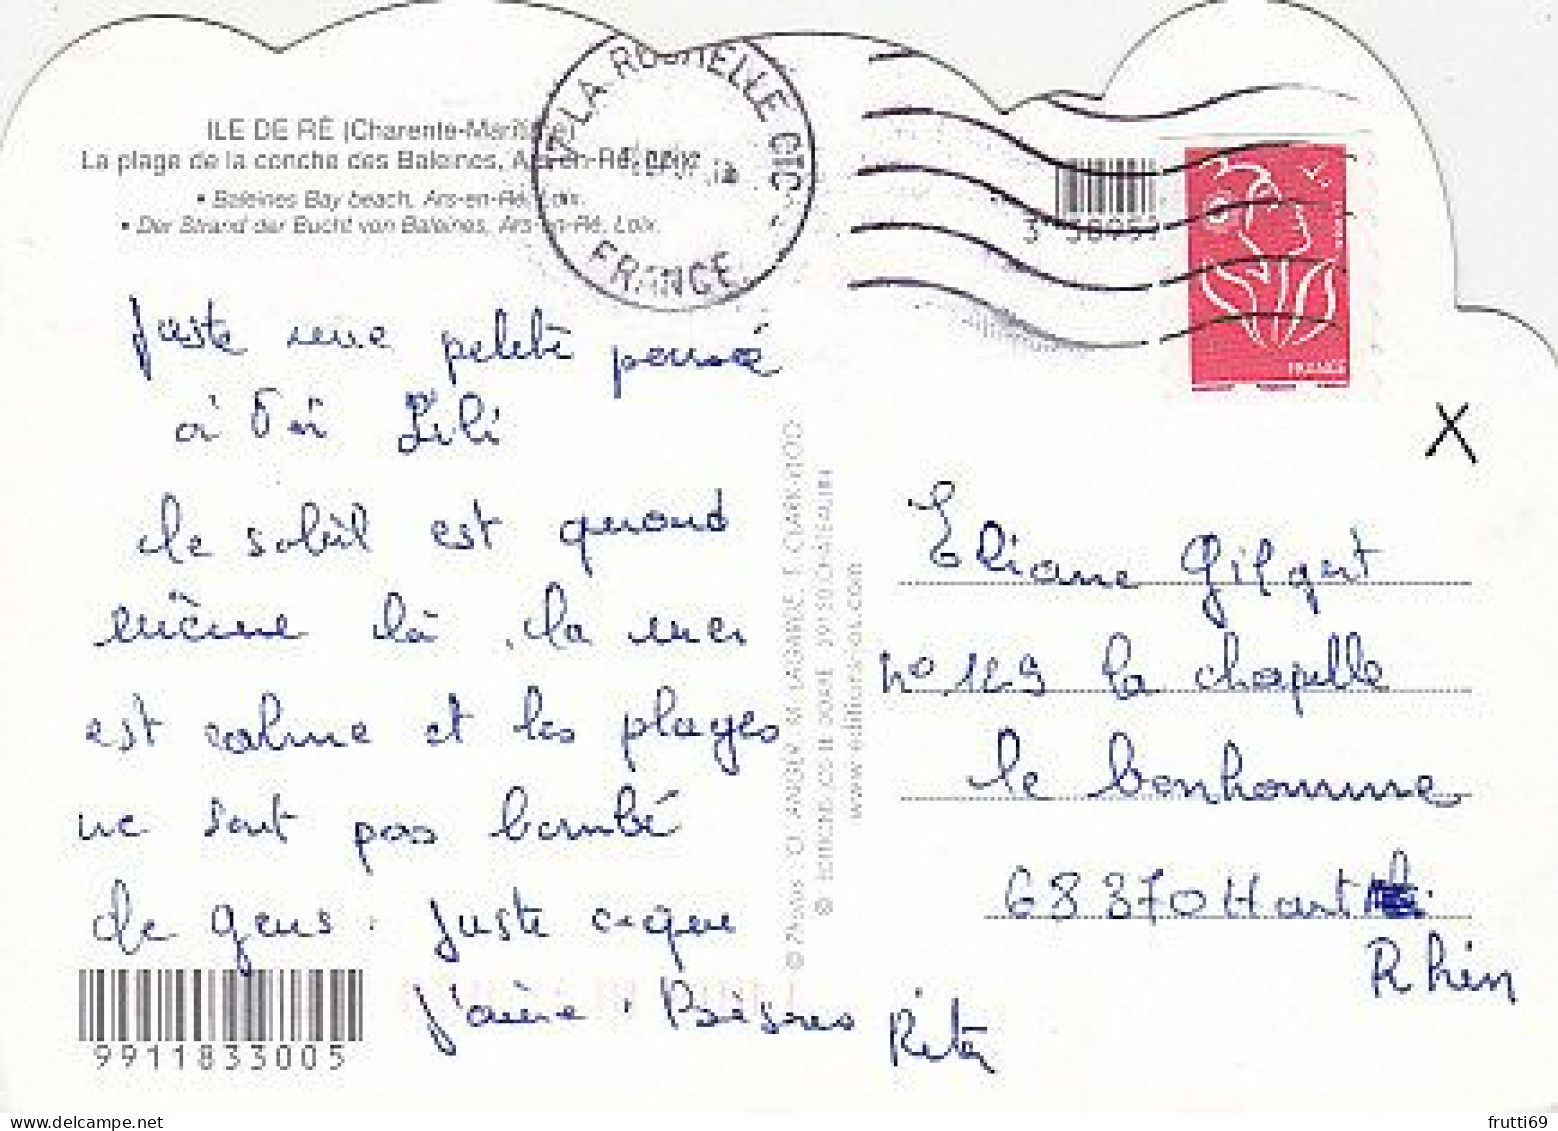 ILE DE RÉ (Charente-Maritime)
La plage de la conche des Baleines, Ars-en-Ré, Loix.
• Baleines Bay beach, Ars-en-Ré, Loix.
• Der Strand der Bucht von Baleines, Ars-en-Ré, Loix.
LA ROCHELLE CTC
FRANCE
FRANCE
Juste une petite pensée
à Toi Lili
Le soleil est quand
même là. La mer
est calme et les plages
ne sont pas bombé
de gens. Juste ce que
j'aime. Bisous Rita
X
Eliane Gilgert
n° 129 la chapelle
le bonhomme
68370 Haut
Rhin
www.editions-os.com
9911833005
frutti69